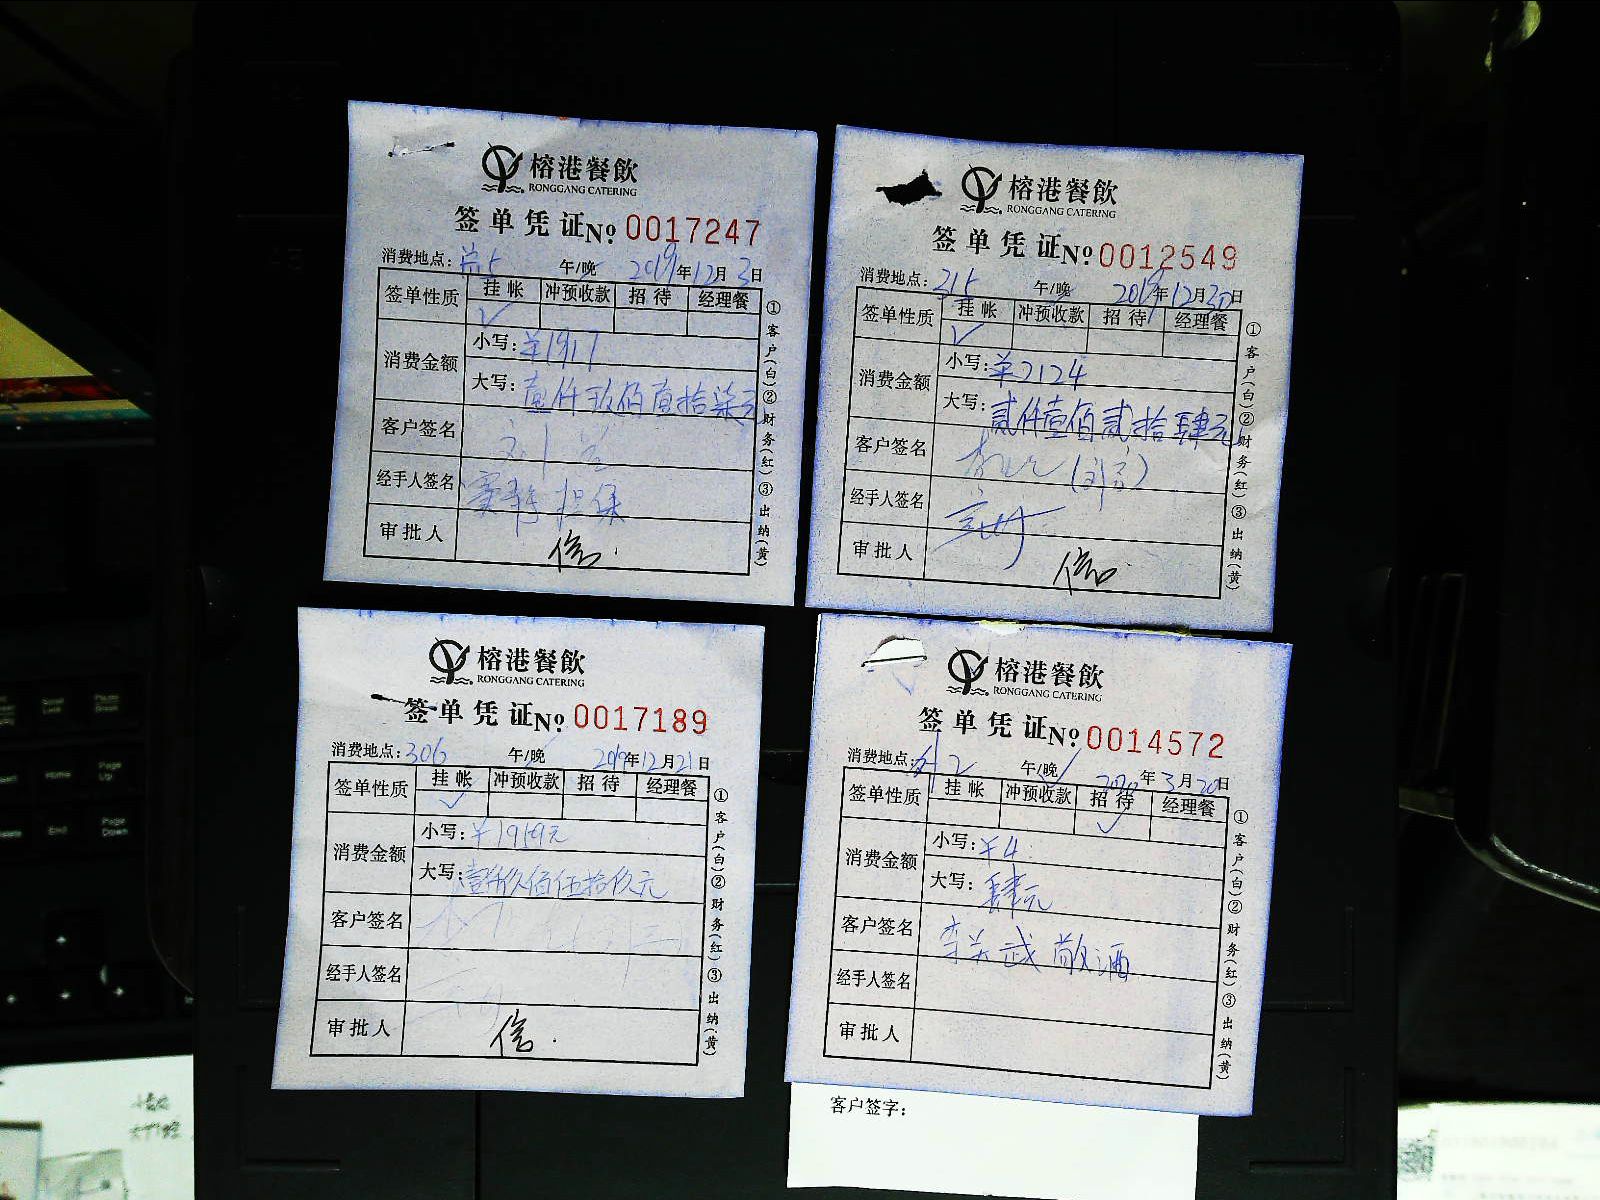 榕港餐飲
RONGGANG CATERING
签单凭证 No 0017247
消费地点: 午/晚 2019年12月3日
签单性质 挂帐 冲预收款 招待 经理餐
✓
消费金额 小写: ¥1917
大写: 壹仟玖佰壹拾柒元
客户签名
经手人签名 担保
审批人
①客户(白)②财务(红)③出纳(黄)
榕港餐飲
RONGGANG CATERING
签单凭证 No 0012549
消费地点: 315 午/晚 2019年12月30日
签单性质 挂帐 冲预收款 招待 经理餐
✓
消费金额 小写: ¥2124
大写: 贰仟壹佰贰拾肆元
客户签名
经手人签名
审批人
①客户(白)②财务(红)③出纳(黄)
榕港餐飲
RONGGANG CATERING
签单凭证 No 0017189
消费地点: 306 午/晚 2019年12月21日
签单性质 挂帐 冲预收款 招待 经理餐
✓
消费金额 小写: ¥1959元
大写: 壹仟玖佰伍拾玖元
客户签名
经手人签名
审批人
①客户(白)②财务(红)③出纳(黄)
榕港餐飲
RONGGANG CATERING
签单凭证 No 0014572
消费地点: 外2 午/晚 2020年3月20日
签单性质 挂帐 冲预收款 招待 经理餐
✓
消费金额 小写: ¥4
大写: 肆元
客户签名 李关武敬酒
经手人签名
审批人
①客户(白)②财务(红)③出纳(黄)
客户签字: